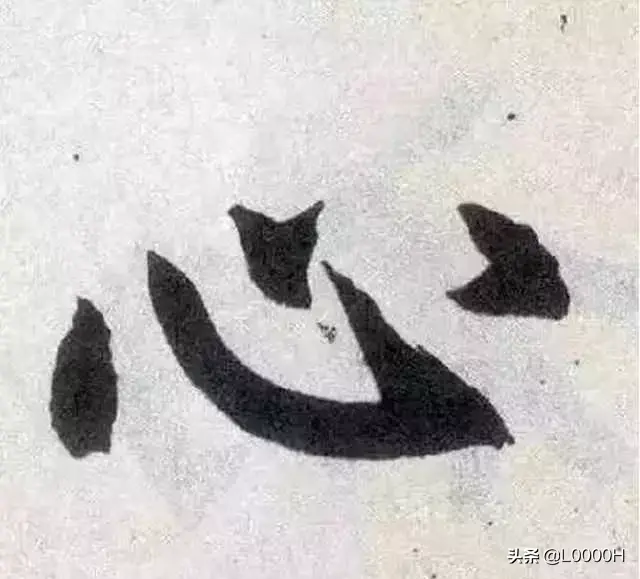 心
头条 @L0000H